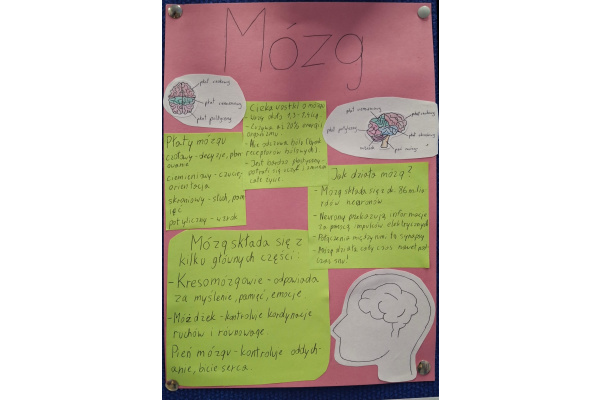 Mózg
płat czołowy
płat ciemieniowy
płat potyliczny
Ciekawostki o mózgu
- Waży około 1,3-1,4 kg.
- Zużywa aż 20% energii
organizmu
- Nie odczuwa bólu (brak
receptorów bólowych).
- Jest bardzo plastyczny -
potrafi się uczyć i zmieniać
całe życie.
płat ciemieniowy
płat czołowy
płat potyliczny
płat skroniowy
móżdżek
pień mózgu
Płaty mózgu
czołowy - decyzje, plan
owanie
ciemieniowy - czucie,
orientacja
skroniowy - słuch, pam
ięć
potyliczny - wzrok
Jak działa mózg?
- Mózg składa się z ok. 86 milia
rdów neuronów
- Neurony przekazują informacje
za pomocą impulsów elektrycznych
- Połączenia między nimi to synapsy
- Mózg działa cały czas nawet pod
czas snu!
Mózg składa się z
kilku głównych części:
- Kresomózgowie - odpowiada
za myślenie, pamięć, emocje
- Móżdżek - kontroluje kordynację
ruchów i równowagę
Pień mózgu - kontroluje oddych-
anie, bicie serca.